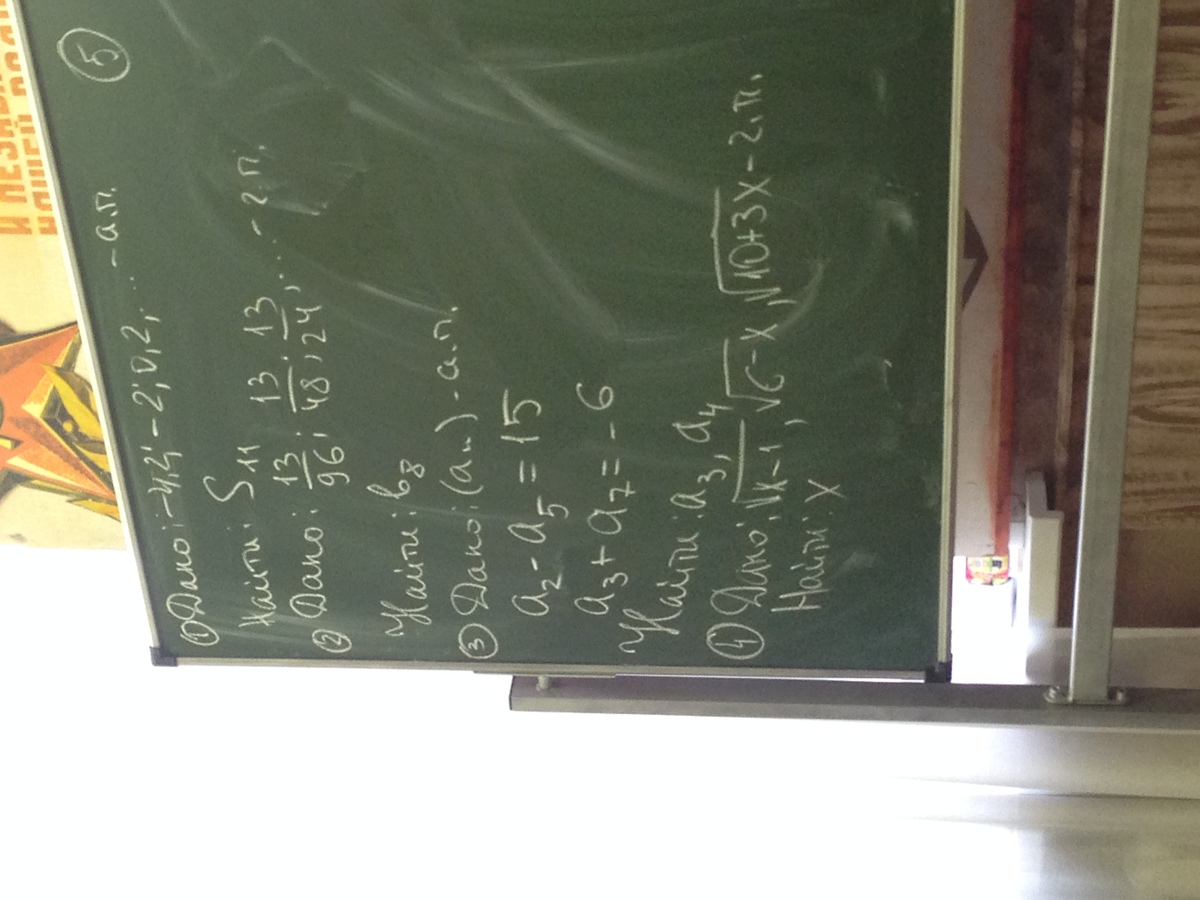 ⑤
① Дано: -4,2; -2; 0,2; ... - а.п.
Найти: S₁₁
② Дано: 13/96; 13/48; 13/24, ... - г.п.
Найти: b₈
③ Дано: (aₙ) - а.п.
a₂ - a₅ = 15
a₃ + a₇ = -6
Найти: a₃, a₄
④ Дано: √x-1, √6-x, √10+3x - г.п.
Найти: x